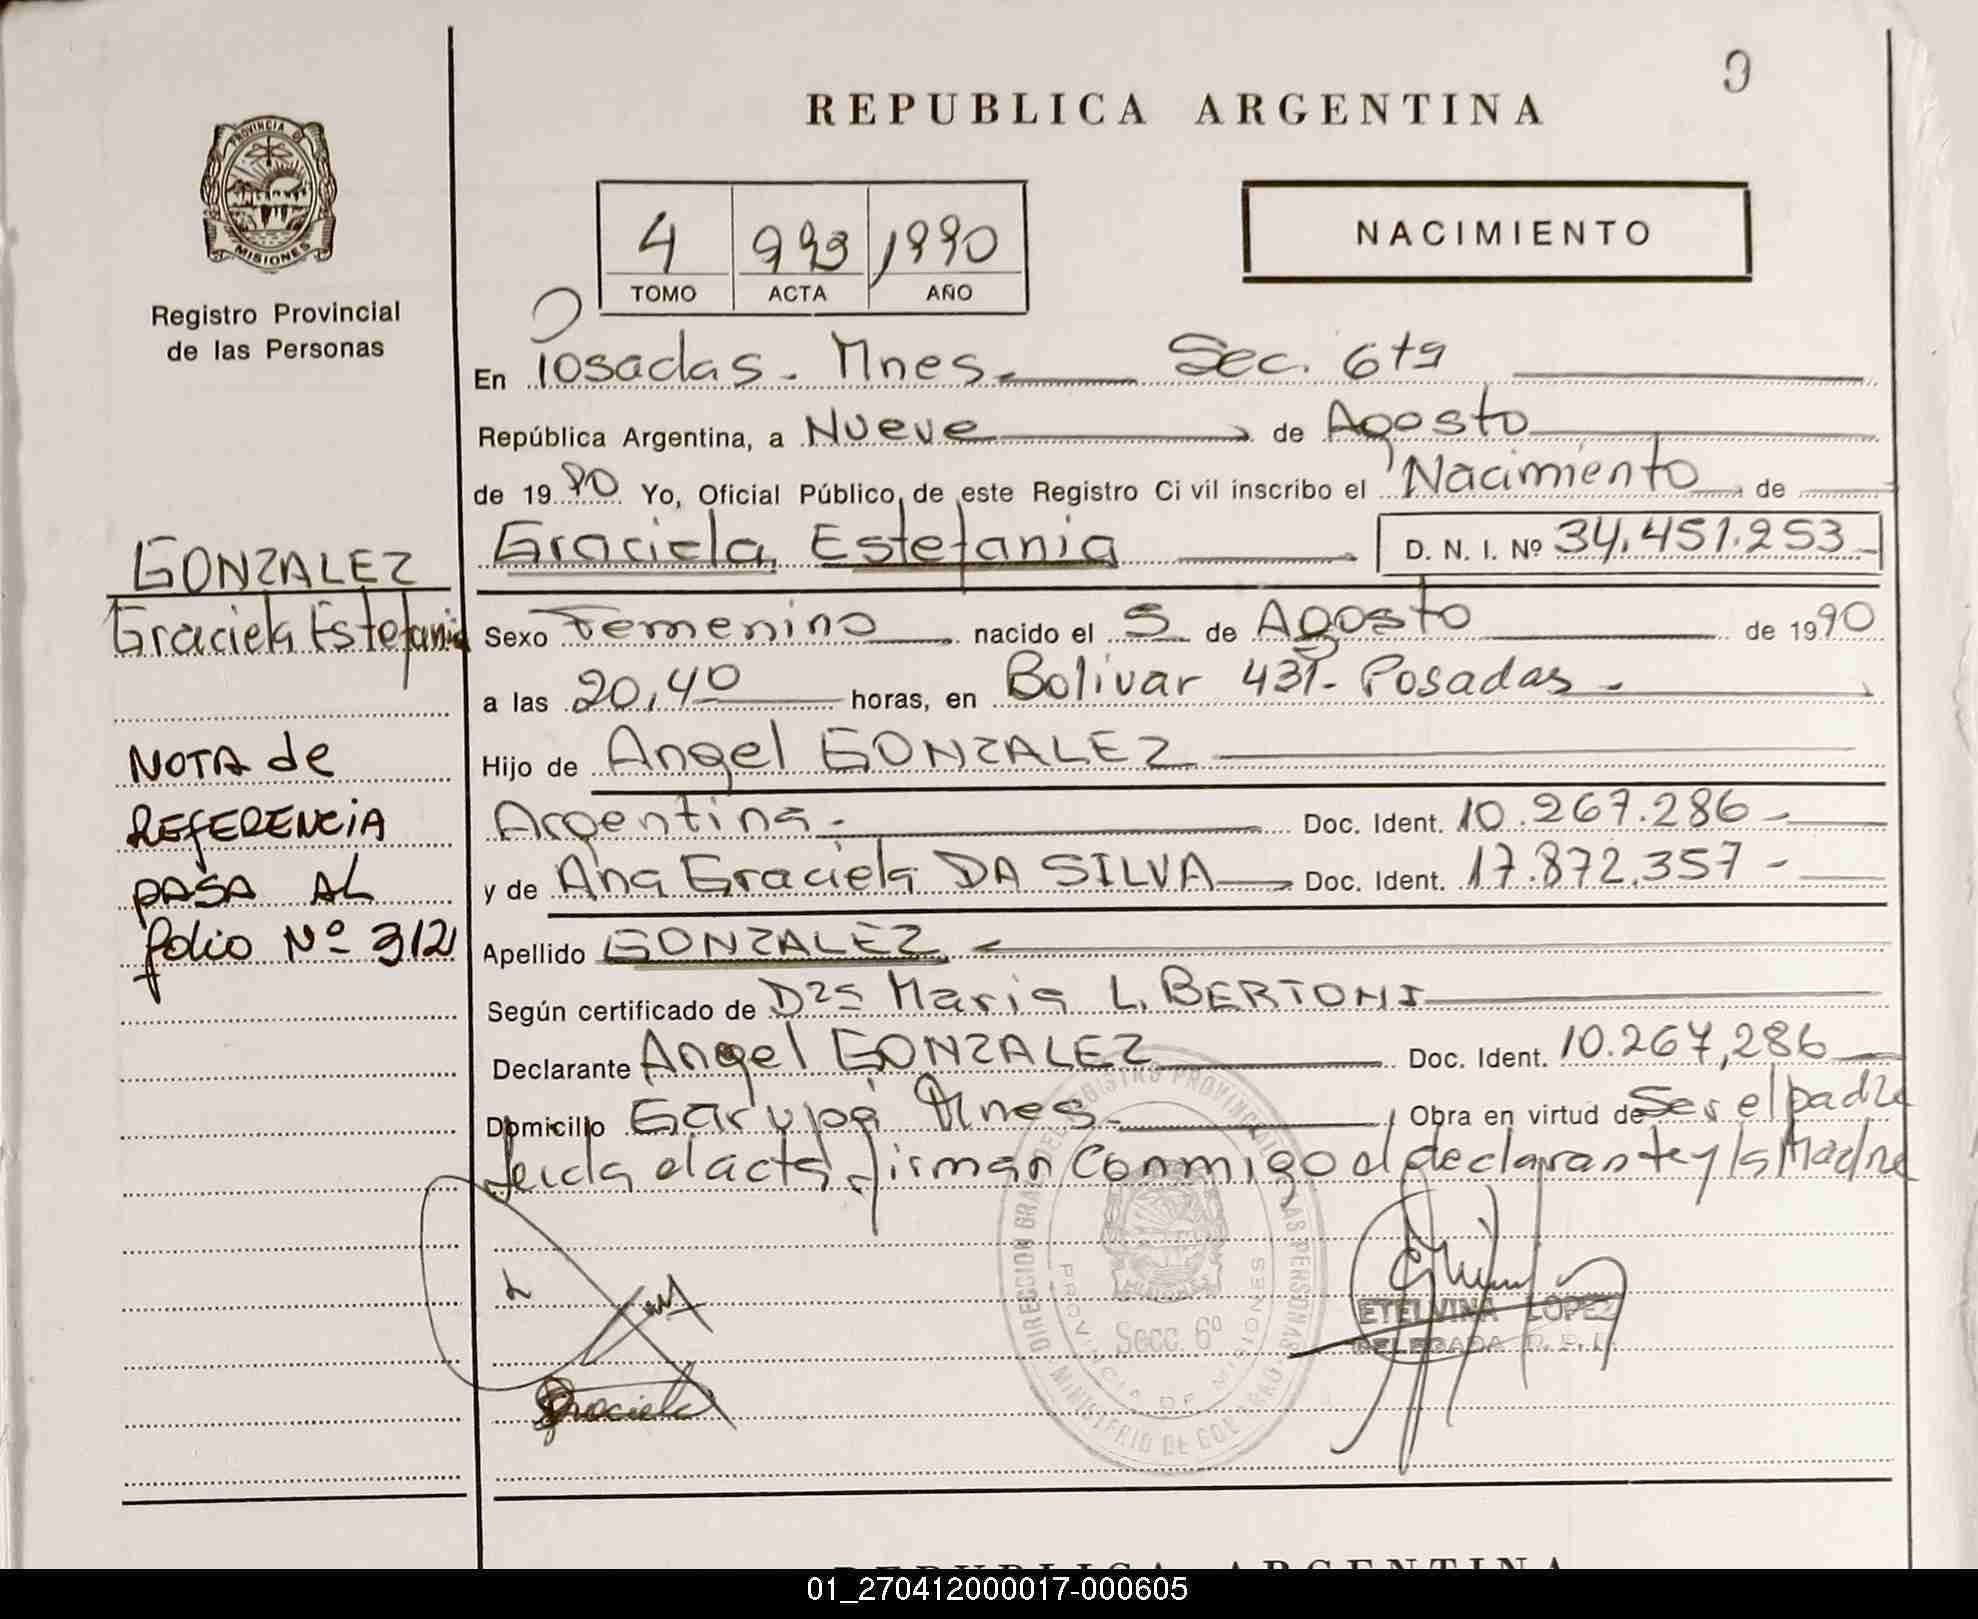 REPUBLICA ARGENTINA
PROVINCIA DE MISIONES
Registro Provincial
de las Personas
4 993 1990
TOMO ACTA AÑO
NACIMIENTO
En Posadas - Mnes. Sec. 6ta
República Argentina, a Nueve de Agosto
de 1990 Yo, Oficial Público de este Registro Civil inscribo el Nacimiento de
Graciela Estefania D. N. I. Nº 34.451.253
GONZALEZ
Graciela Estefania
Sexo Femenino nacido el 5 de Agosto de 1990
a las 20,40 horas, en Bolivar 431 - Posadas -
Hijo de Angel GONZALEZ
Argentina - Doc. Ident. 10.267.286 -
y de Ana Graciela DA SILVA Doc. Ident. 17.872.357 -
Apellido GONZALEZ
Según certificado de Dra Maria L. BERTONI
Declarante Angel GONZALEZ Doc. Ident. 10.267,286
Domicilio Garupá Mnes. Obra en virtud de Ser el padre
leida el acta firman conmigo el declarante y la Madre
NOTA de
REFERENCIA
PASA AL
folio Nº 312
DIRECCION GRAL. DEL REGISTRO PROVINCIAL DE LAS PERSONAS
MINISTERIO DE GOBIERNO
PROVINCIA DE MISIONES
Secc. 6º
ETELVINA LOPEZ
DELEGADA R.P.P.
Graciela
REPUBLICA ARGENTINA
01_270412000017-000605